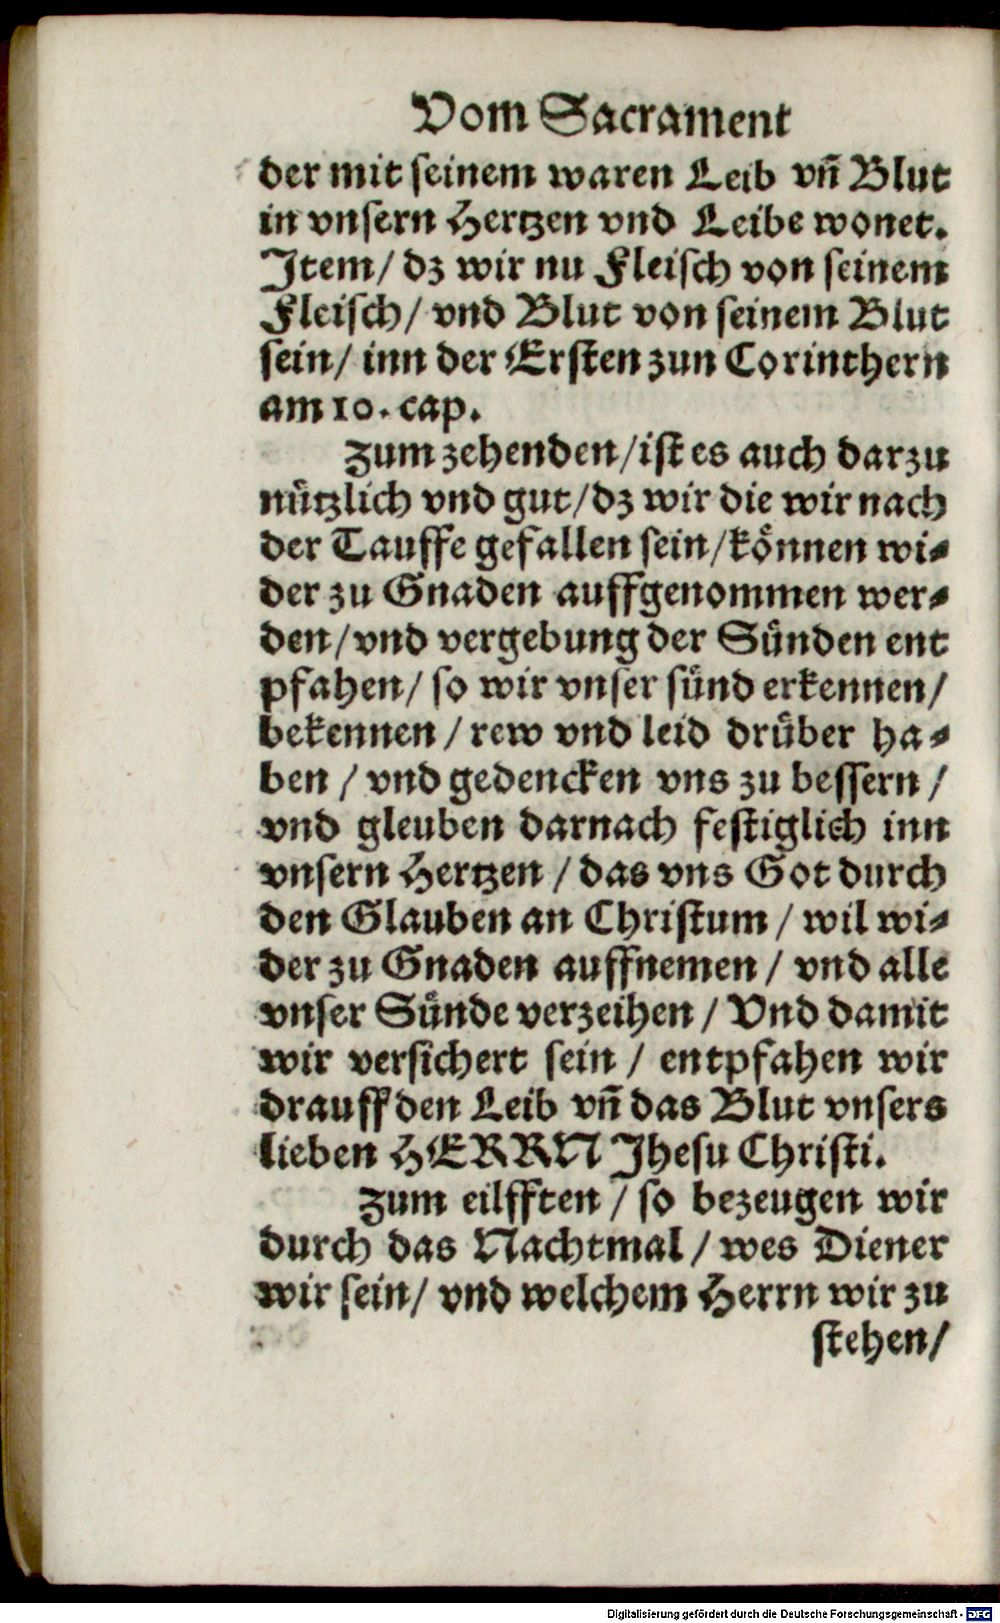 Vom Sacrament
der mit seinem waren Leib vñ Blut
in vnsern Hertzen vnd Leibe wonet.
Item/ dz wir nu Fleisch von seinem
Fleisch/ vnd Blut von seinem Blut
sein/ inn der Ersten zun Corinthern
am 10. cap.
Zum zehenden/ist es auch darzu
nützlich vnd gut/dz wir die wir nach
der Tauffe gefallen sein/können wi-
der zu Gnaden auffgenommen wer-
den/vnd vergebung der Sünden ent
pfahen/ so wir vnser sünd erkennen/
bekennen / rew vnd leid drüber ha-
ben / vnd gedencken vns zu bessern /
vnd gleuben darnach festiglich inn
vnsern Hertzen / das vns Got durch
den Glauben an Christum / wil wi-
der zu Gnaden auffnemen / vnd alle
vnser Sünde verzeihen / Vnd damit
wir versichert sein / entpfahen wir
drauff den Leib vñ das Blut vnsers
lieben HERRN Jhesu Christi.
Zum eilfften / so bezeugen wir
durch das Nachtmal / wes Diener
wir sein/ vnd welchem Herrn wir zu
stehen/
Digitalisierung gefördert durch die Deutsche Forschungsgemeinschaft - DFG